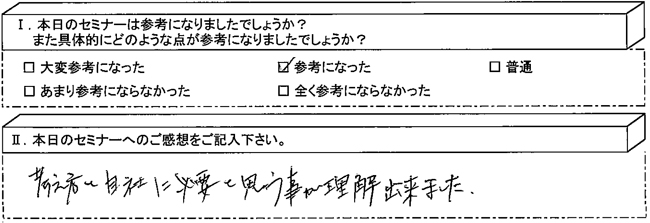 Ⅰ. 本日のセミナーは参考になりましたでしょうか？
また具体的にどのような点が参考になりましたでしょうか？
□ 大変参考になった ☑ 参考になった □ 普通
□ あまり参考にならなかった □ 全く参考にならなかった
Ⅱ. 本日のセミナーへのご感想をご記入下さい。
考え方と自社に必要と思う事が理解出来ました.